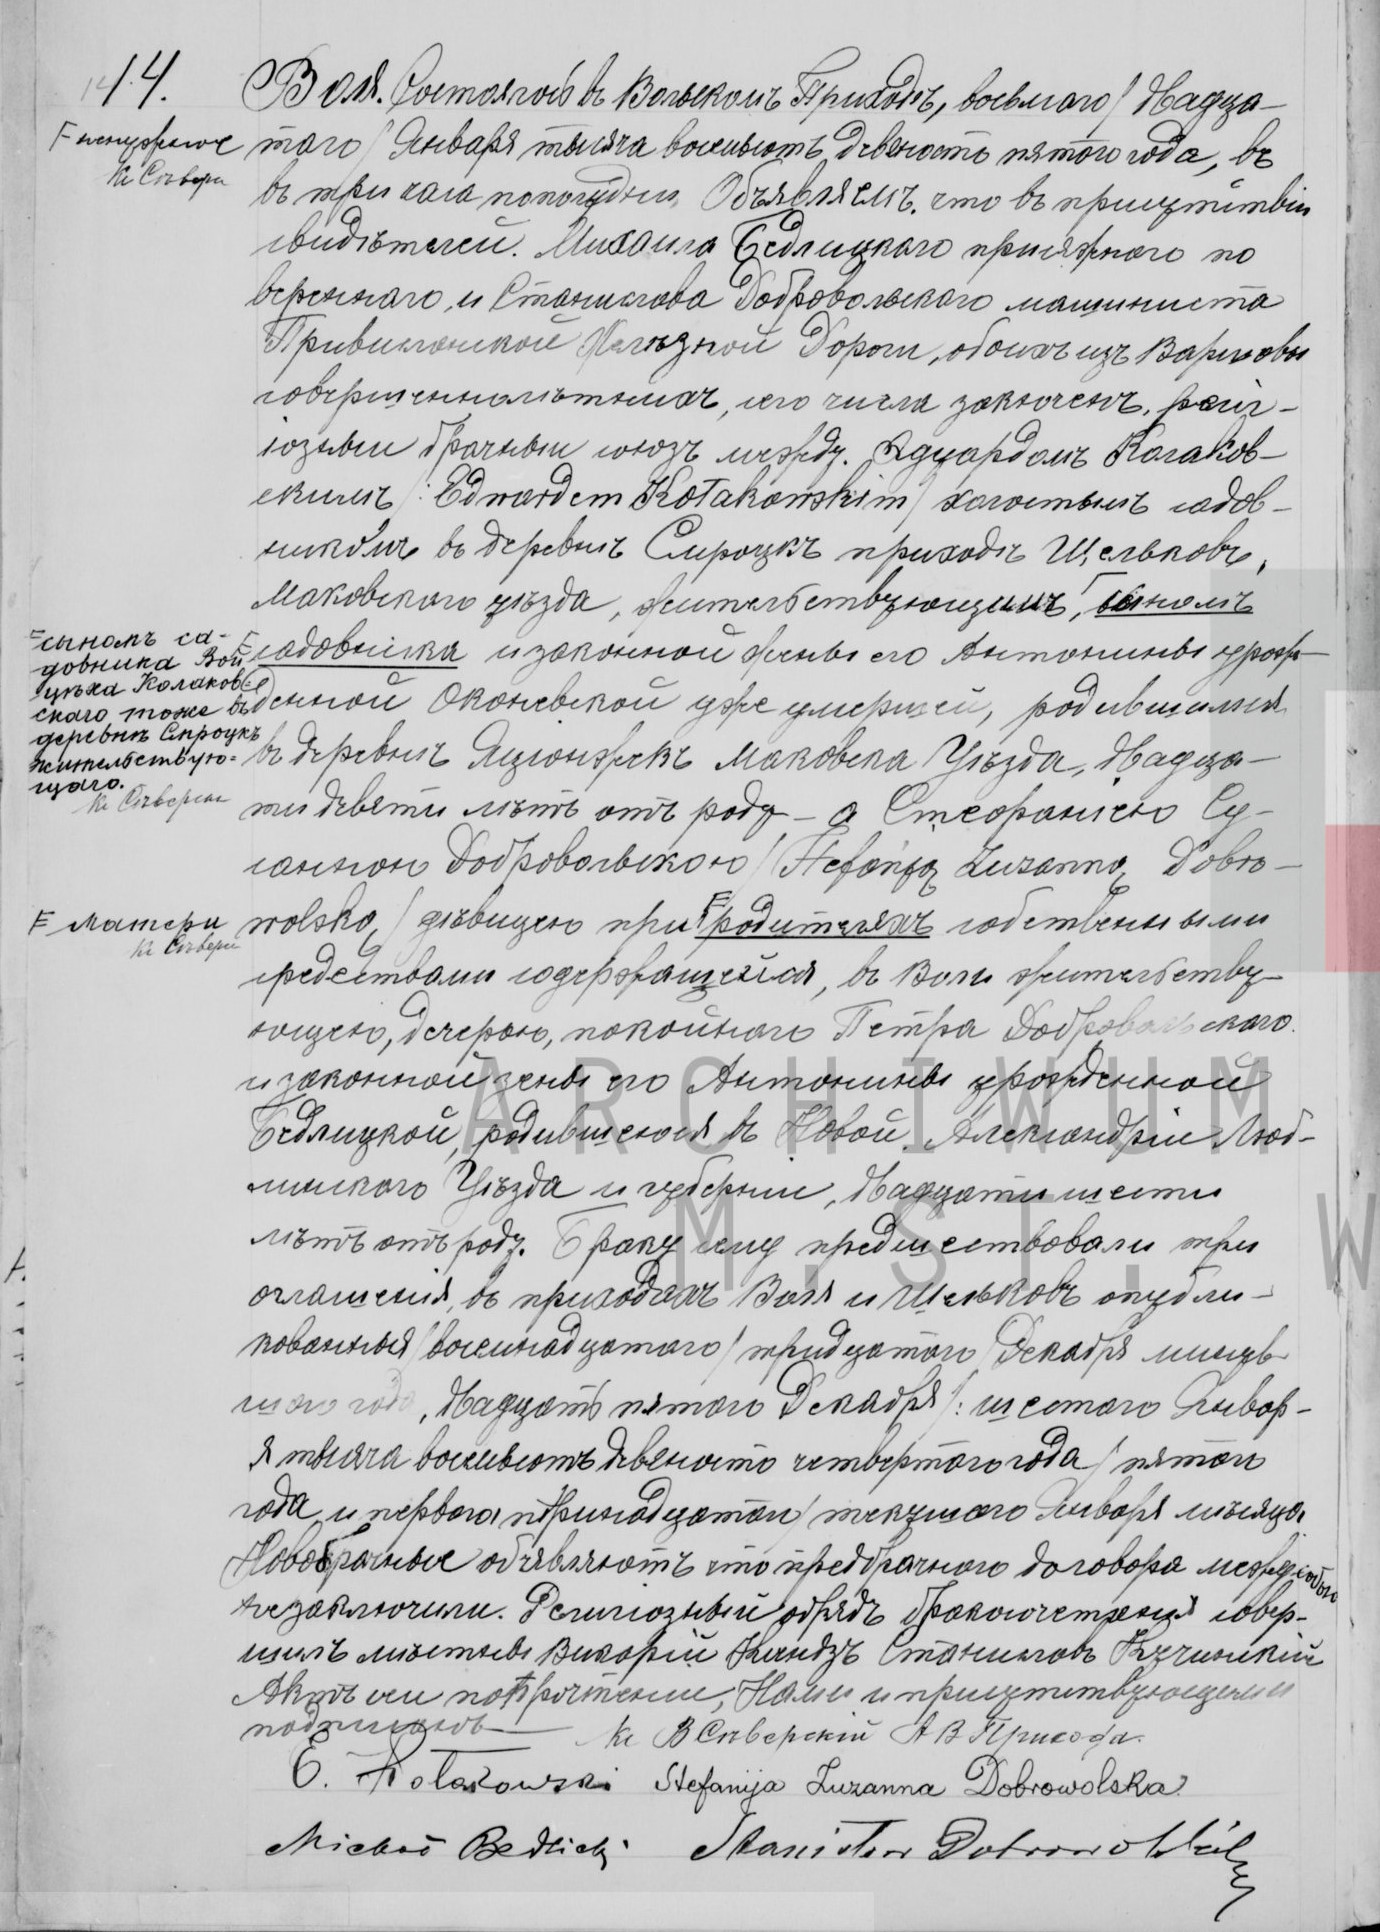 14.
Воля. Состоялось въ Вольскомъ Приходѣ, восьмаго / двадца-
таго / Января тысяча восемьсотъ девяносто пятого года, въ
Кс Сѣверск
въ три часа пополудни. Объявляемъ, что въ присутствіи
свидѣтелей. Михаила Бедлицкаго присяжнаго по
вереннаго, и Станислава Добровольскаго машиниста
Привислянской Желѣзной Дороги, обоихъ изъ Варшавы
совершеннолѣтнихъ, сего числа заключенъ, рели-
гіозный брачный союзъ между. Эдуардомъ Колаков-
скимъ /: Edwardem Kołakowskim / холостымъ садов-
никомъ въ деревнѣ Смроцкъ прихода Шельковъ,
Маковскаго уѣзда, жительствующимъ, сыномъ
сыномъ са-
довника Вой
цѣха Колаков-
скаго, тоже въ
деревнѣ Смроцкъ
жительствую-
щаго.
Кс Сѣверск
садовника и законной жены его Антонины урож-
денной Оконевской уже умершей, родившимся
въ деревнѣ Маковска Уѣзда, двадца-
ти девяти лѣтъ отъ роду – а Стефаніею Су-
занною Добровольскою / Stefanją Zuzanną Dobro-
матери
Кс Сѣверск
wolską / дѣвицею при родителяхъ собственными
средствами содержащейся, въ Воли жительству-
ющею, дочерью, покойнаго Петра Добровольскаго
и законной жены его Антонины урожденной
Бедлицкой, родившеюся въ Новой Александріи Люб-
линскаго Уѣзда и губерніи, двадцати шести
лѣтъ отъ роду. Браку сему предшествовали три
оглашенія, въ приходахъ Воля и Шельковъ опубли-
кованныя / восемнадцатаго / тридцатаго / Декабря минув-
шаго года, двадцать пятаго Декабря /: шестаго Январ-
я тысяча восемьсотъ девяносто четвертаго года / пятаго
года и перваго тринадцатаго / текущаго Января мѣсяца.
Новобрачные объявляютъ что предбрачнаго договора между собою
не заключили. Религіозный обрядъ бракосочетанія совер-
шилъ мѣстный Викарій Ксендзъ Станиславъ
Актъ сей по прочтеніи, Нами и присутствующими
подписанъ Кс В Сѣверскій А В Прихода.
E. Kołakowski Stefanija Zuzanna Dobrowolska
Michał Bedlicki Stanisław Dobrowolski
ARCHIWUM
M. ST. W